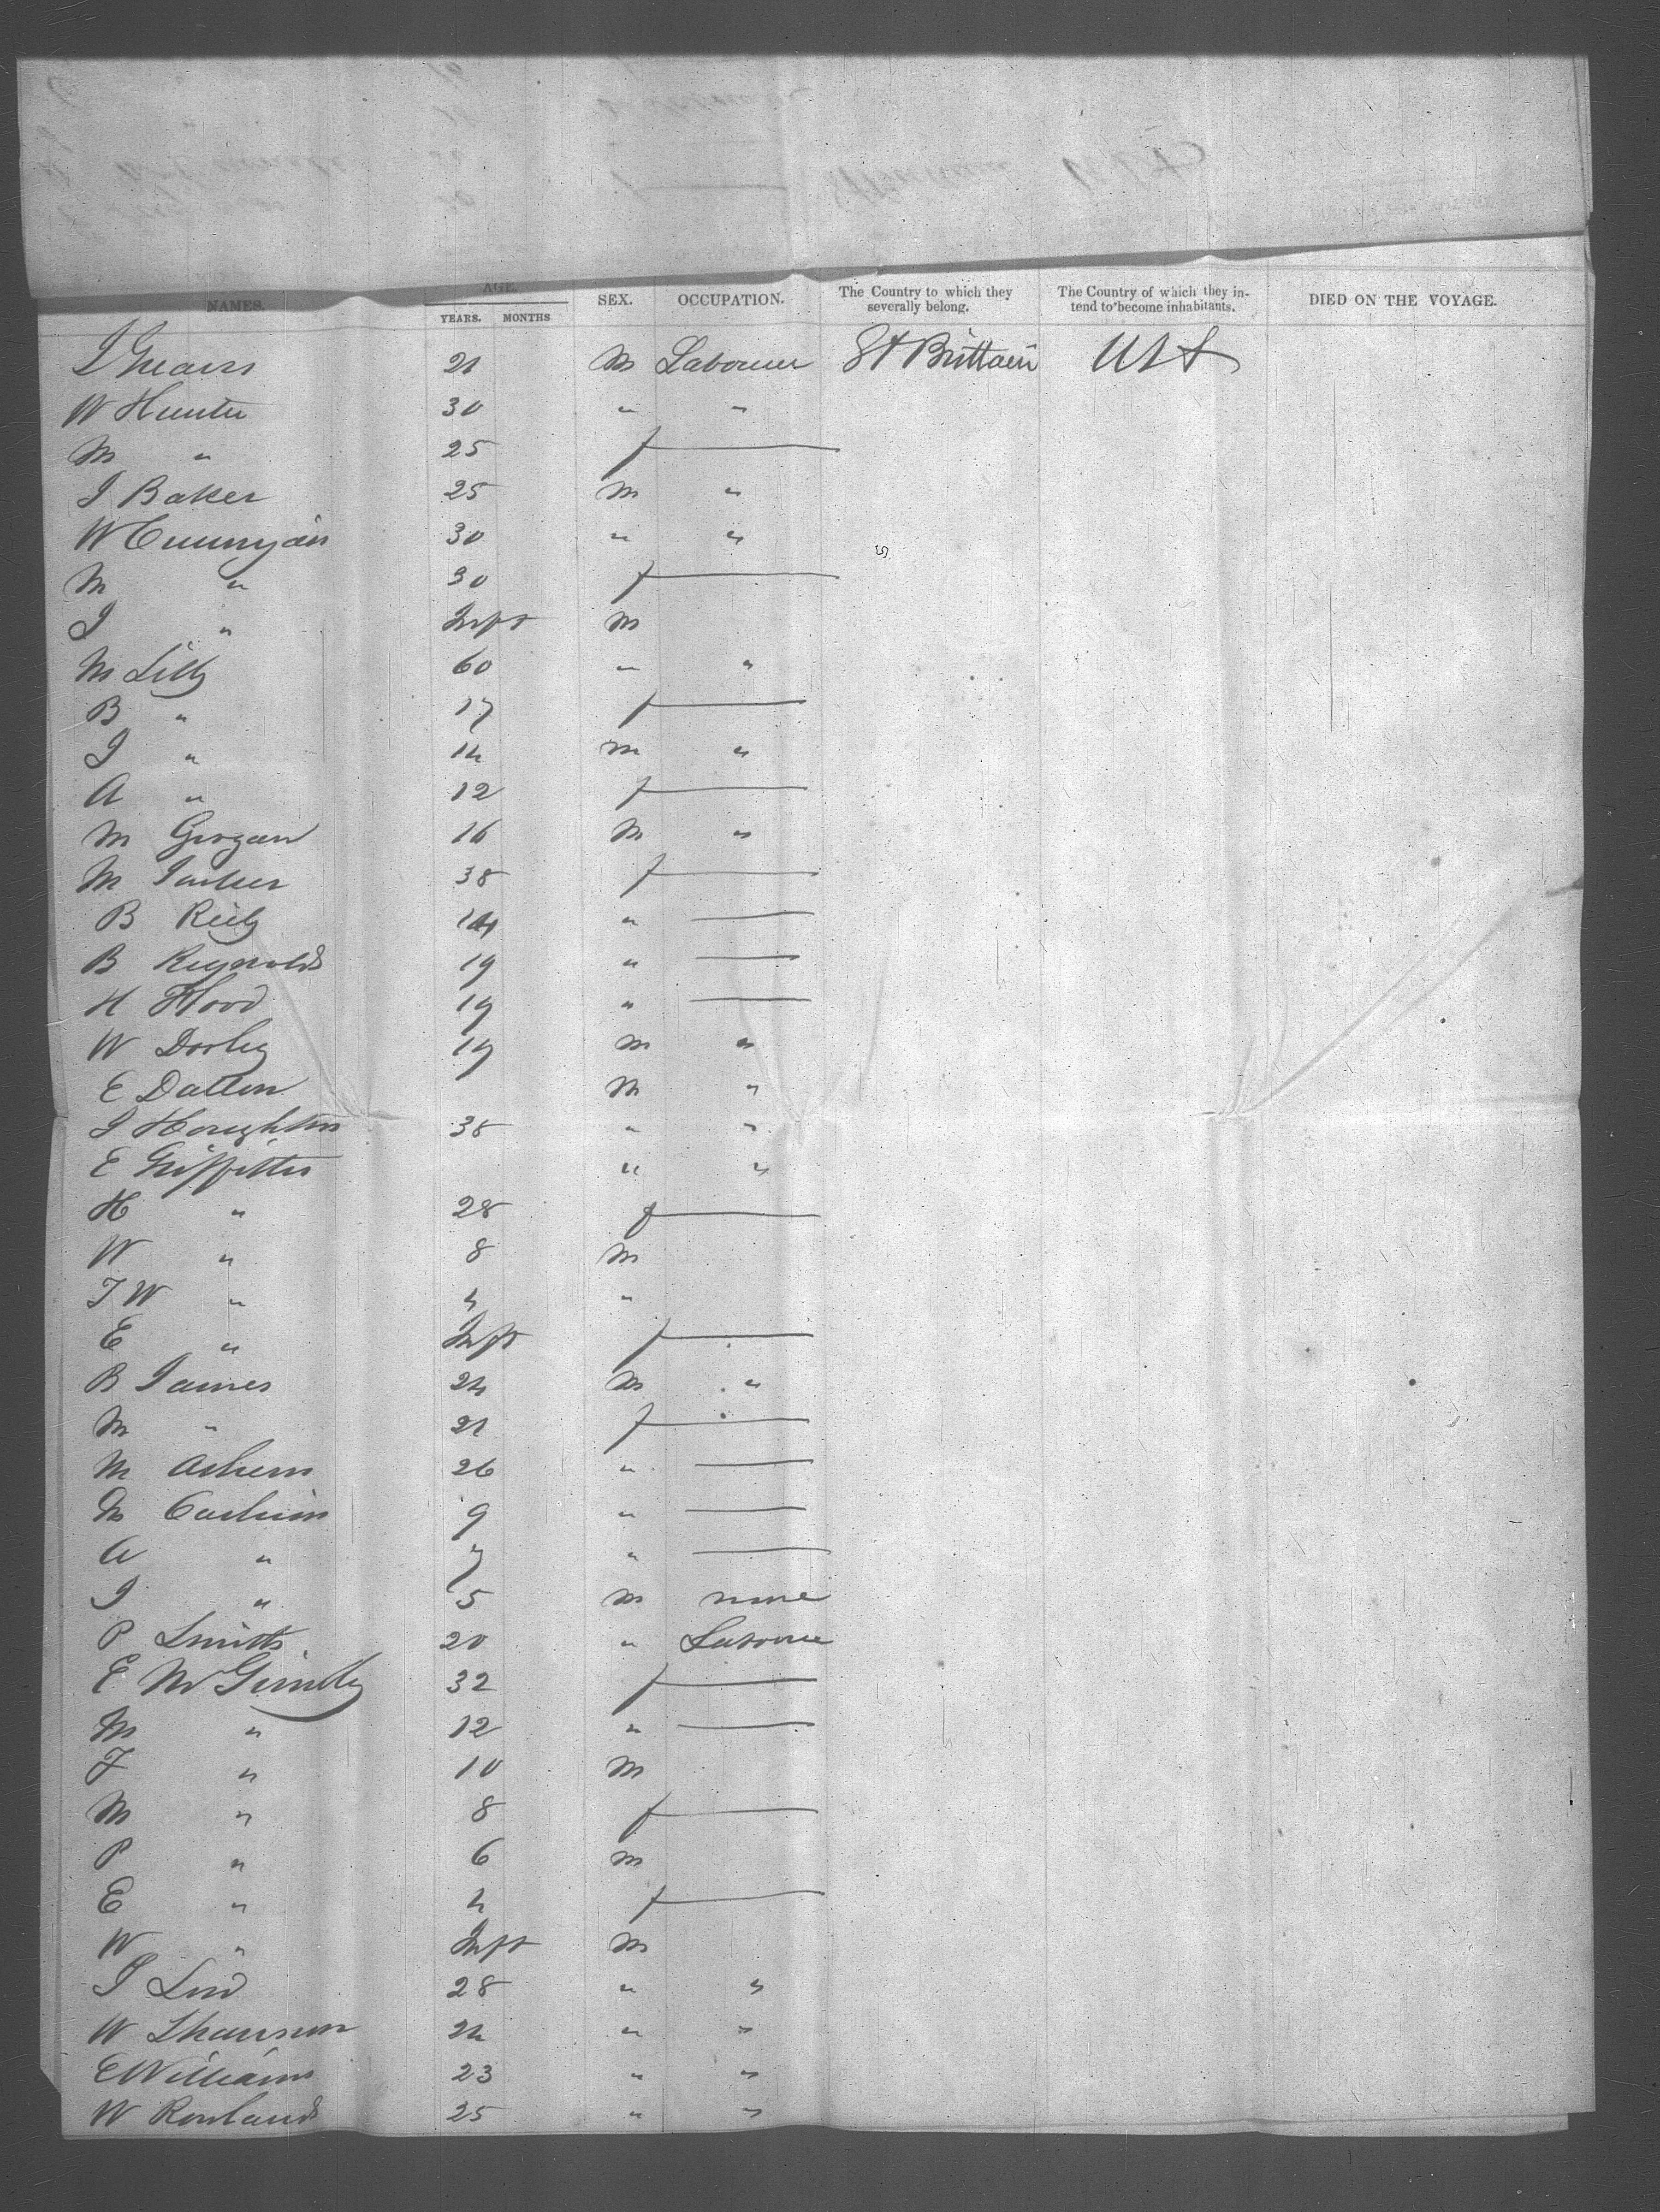 NAMES. AGE. YEARS. MONTHS SEX. OCCUPATION. The Country to which they severally belong. The Country of which they intend to become inhabitants. DIED ON THE VOYAGE.
21 m Labourer Gt Brittain USA
W Hunter 30 " "
M " 25 f
J Baker 25 m "
W 30 " "
M " 30 f
J " Inft m
M Lilly 60 " "
B " 17 f
J " 14 m "
A " 12 f
M Grogan 16 m "
M 38 f
B Reily 14 "
B Reynolds 19 "
H Flood 19 "
W Dorley 19 m "
E Dalton m "
J Houghton 38 " "
E Griffiths " "
H " 28 f
W " 8 m
T W " 4 "
E " Inft f
B James 24 m "
M " 21 f
M 26 "
M 9 "
A " 7 "
J " 5 m none
P Smith 20 " Laboure
E McGinnlly 32 f
M " 12 "
F " 10 m
M " 8 f
P " 6 m
E " 4 f
W " Inft m
J 28 " "
W Shannon 24 " "
E Williams 23 " "
W Rowlands 25 " "